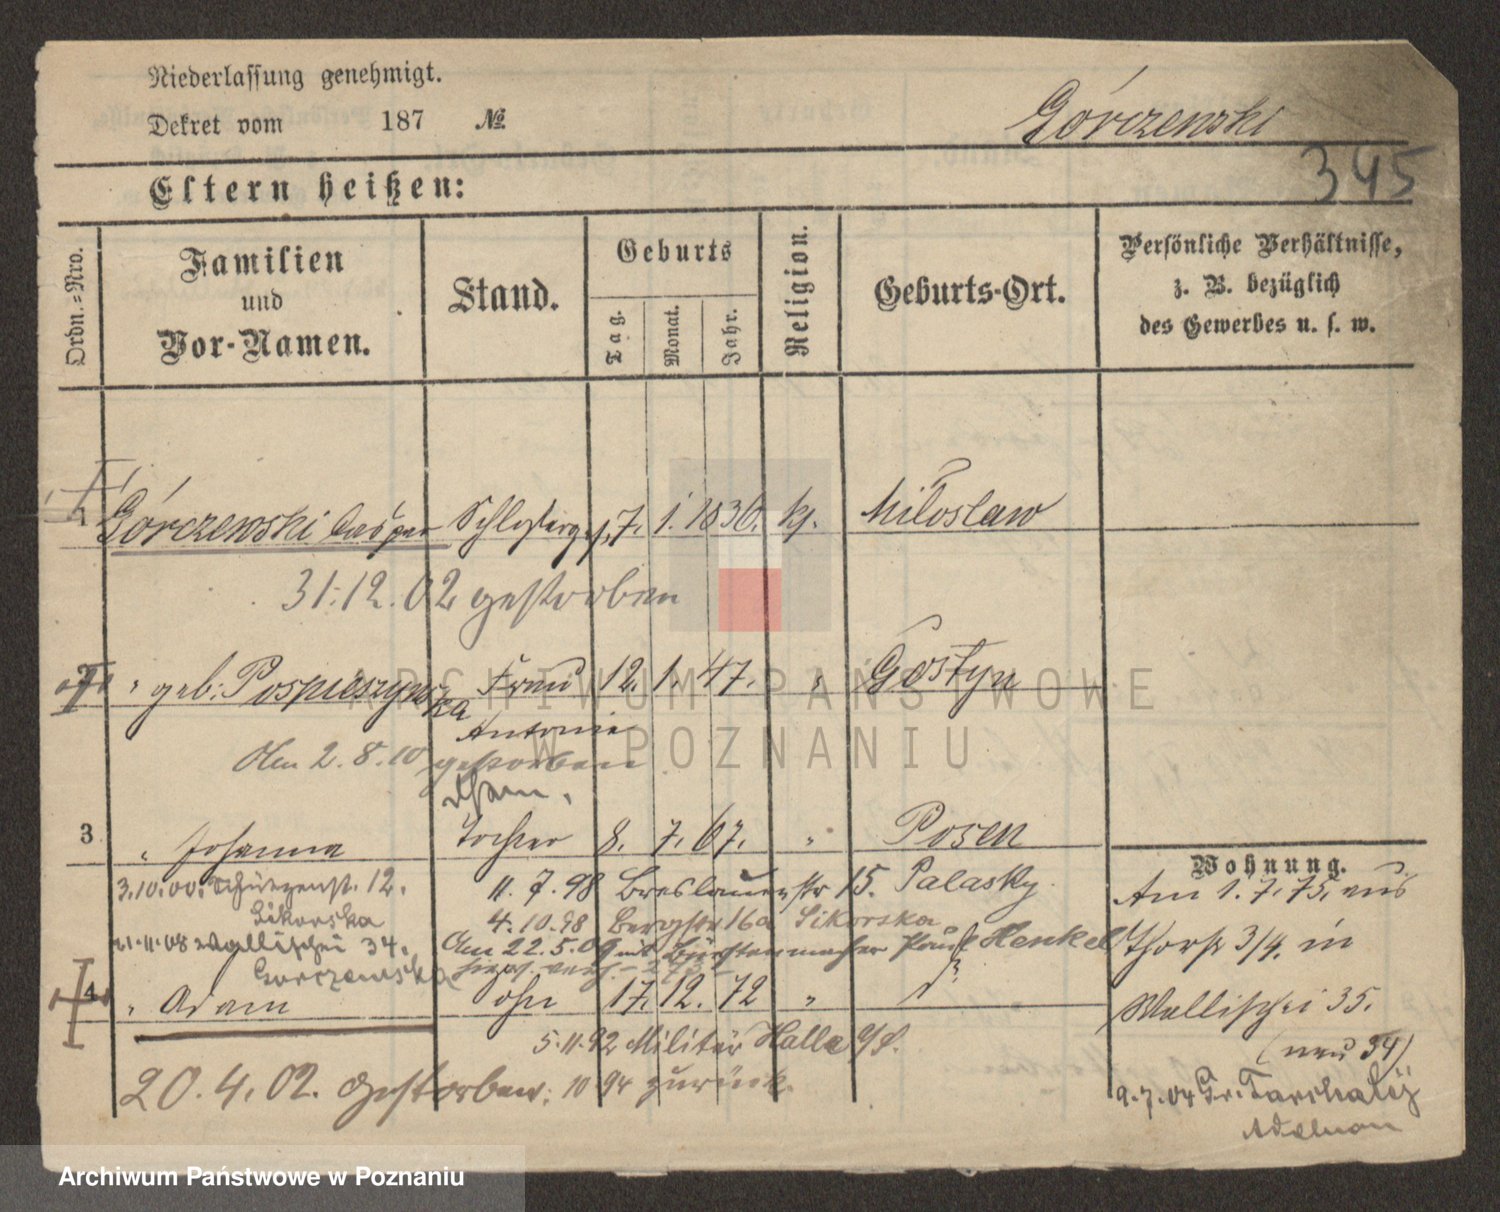 Niederlassung genehmigt.
Dekret vom 187 №
Górczenski
345
Eltern heißen:
Ordn.=Nro.
Familien
und
Vor-Namen.
Stand.
Geburts
Tag.
Monat.
Jahr.
Religion.
Geburts-Ort.
Persönliche Verhältnisse,
z. B. bezüglich
des Gewerbes u. s. w.
1 Górczewski Casper Schlosserges. 7. 1. 1836. kt. Miloslaw
31.12.02 gestorben
2 " geb. Pospieszynska Frau 12. 1. 47. " Gostyn
Antonie
Am 2.8.10 gestorben
3 " Johanna Tochter 8. 7. 67. " Posen
3.10.00. Schützenst. 12. 11.7.98 Breslauerstr 15. Palasky
Sikorska 4.10.98 Bergstr 16a Sikorska
21.11.08 Wallischei 34. Am 22.5.09 mit Bürstenmacher Paul Henkel
Gorczewska
4 " Adam ohn 17. 12. 72 "
5.11.92 Militär Halle a/S.
20.4.02. Gestorben. 10 94 zurück.
Wohnung.
Am 1.7.75. aus
Thorstr 3/4. in
Wallischei 35.
(neu 34)
9.7.04 Gr.
ARCHIWUM PAŃSTWOWE
W POZNANIU
Archiwum Państwowe w Poznaniu